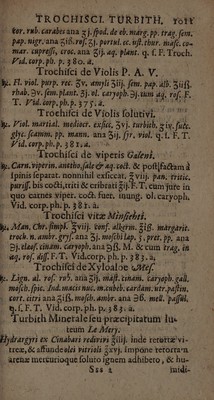 TROCHISCI. TURBITH. 1011
tor. rub. carabes ana ʒj. spod. de eb. marg. pp. trag. sem.
pap. nigr. ana ʒiß. ros. ʒj. portul. cc. ust. thur. masc. co-
mar. cupressi, croc. ana ʒij. aq. plant. q. s. F. Troch.
Vid. corp. ph. p. 380. a.
Trochisci de Violis P. A. V.
℞. Fl. viol. purp. rec. ʒv. amyli ʒiij. sem. pap. alb. ʒiiß.
rhab. ʒv. sem. plant. ʒj. ol. caryoph. ʒj. cum aq. ros. F.
T. Vid. corp. ph. p. 375. a.
Trochisci de Violis solutivi.
℞. Viol. martial. mediocr. exsicc. ʒvj. turbith. ʒiv. succ.
glyc. scamm. pp. mann. ana ʒij. syr. viol. q. s. F. T.
Vid. corp. ph. p. 381. a.
Trochisci de viperis Galeni.
℞. Carn. viperin. anetho, sale & aq. coct. & postfactam à
spinis separat. nonnihil exsiccat. ʒviij. pan. tritic.
puris. bis cocti, triti & cribrati ʒij. F. T. cum jure in
quo carnes viper. coct. fuer. inung. ol. caryoph.
Vid. corp. ph. p. 381. a.
Trochisci vitæ Minsehti.
℞. Man. Chr. simpl. ʒviij. conf. alkerm. ʒiß. margarit.
præp. ambr. gryf. ana ʒj. moschi lap. ʒ. prat. pp. ana
ʒj. eleof. cinam. caryoph. ana ʒß. M. & cum trag. in
aq. ros. diss. F. T. Vid. corp. ph. p. 383. a.
Trochisci de Xyloaloe Mes.
℞. Lign. al. ros. rub. ana ʒij. mast. cinam. caryoph. gall.
mosch. spic. Ind. macis nuc. m. cubeb. cardam. utr. pastin.
cort. citri ana ʒiß. mosch. ambr. ana ℈ß. mell. passul.
q. s. F. T. Vid. corp. ph. p. 383. a.
Turbith Minerale seu præcipitatum lu-
teum Le Mery.
Hydrargyri ex Cinabari redivivi ʒiiij. inde retortæ vi-
treæ, & affunde olei vitrioli ʒxvj. impone retortam
arenæ mercurioque soluto ignem adhibeto, & hu-
Sss 2 midi-